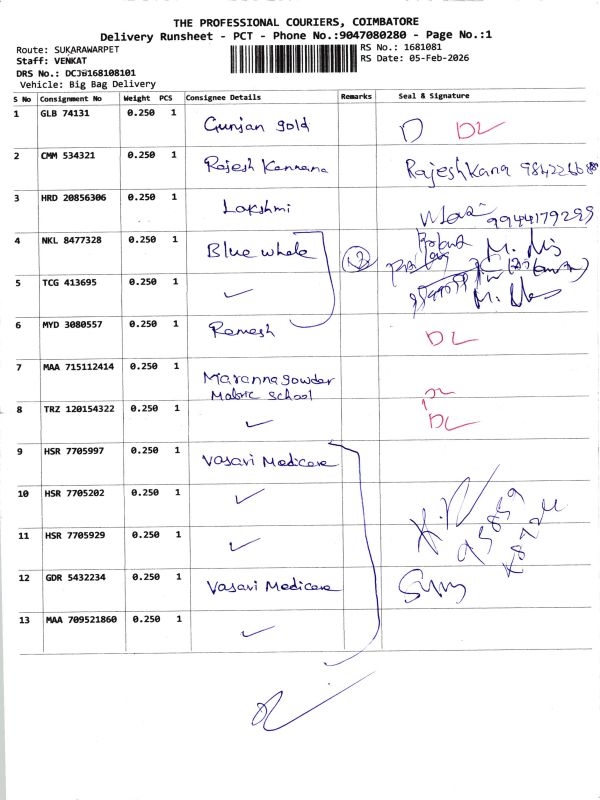 THE PROFESSIONAL COURIERS, COIMBATORE
Delivery Runsheet - PCT - Phone No.:9047080280 - Page No.:1
Route: SUKARAWARPET
Staff: VENKAT
DRS No.: DCJB168108101
Vehicle: Big Bag Delivery
RS No.: 1681081
RS Date: 05-Feb-2026
S No Consignment No Weight PCS Consignee Details Remarks Seal & Signature
1 GLB 74131 0.250 1 Gunjan gold DL
2 CMM 534321 0.250 1 Rajesh Kannana RajeshKana
3 HRD 20856306 0.250 1 Lakshmi 9944179299
4 NKL 8477328 0.250 1 Blue whale 2
5 TCG 413695 0.250 1 ✓
6 MYD 3080557 0.250 1 Ramesh DL
7 MAA 715112414 0.250 1 Maranna gowder
Matric School DL
8 TRZ 120154322 0.250 1 ✓ DL
9 HSR 7705997 0.250 1 Vasavi Medicare
10 HSR 7705202 0.250 1 ✓
11 HSR 7705929 0.250 1 ✓
12 GDR 5432234 0.250 1 Vasavi Medicare
13 MAA 709521860 0.250 1 ✓